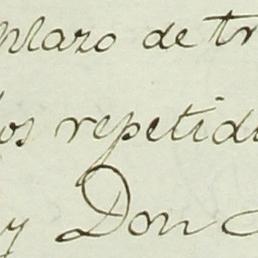 plazo de tr
los repetid
y Don